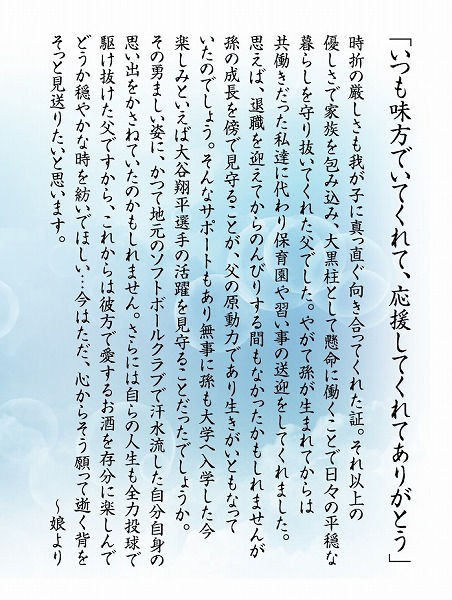 「いつも味方でいてくれて、応援してくれてありがとう」
時折の厳しさも我が子に真っ直ぐ向き合ってくれた証。それ以上の
優しさで家族を包み込み、大黒柱として懸命に働くことで日々の平穏な
暮らしを守り抜いてくれた父でした。やがて孫が生まれてからは
共働きだった私達に代わり保育園や習い事の送迎をしてくれました。
思えば、退職を迎えてからのんびりする間もなかったかもしれませんが
孫の成長を傍で見守ることが、父の原動力であり生きがいともなって
いたのでしょう。そんなサポートもあり無事に孫も大学へ入学した今
楽しみといえば大谷翔平選手の活躍を見守ることだったでしょうか。
その勇ましい姿に、かつて地元のソフトボールクラブで汗水流した自分自身の
思い出をかさねていたのかもしれません。さらには自らの人生も全力投球で
駆け抜けた父ですから、これからは彼方で愛するお酒を存分に楽しんで
どうか穏やかな時を紡いでほしい…今はただ、心からそう願って逝く背を
そっと見送りたいと思います。
～娘より